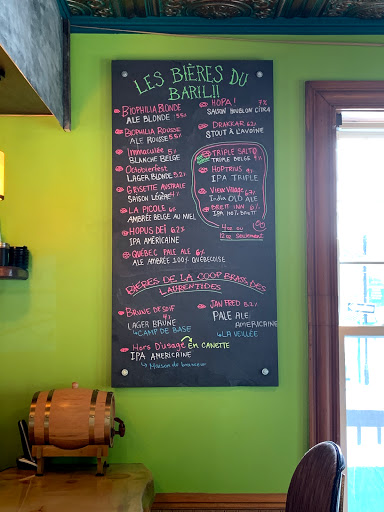 LES BIÈRES DU
BARIL!!
BIOPHILIA BLONDE
ALE BLONDE 5.5%
BIOPHILIA ROUSSE
ALE ROUSSE 5.5%
IMMACULÉE 5%
BLANCHE BELGE
OCTOBIERFEST
LAGER BLONDE 5.2%
GRISETTE AUSTRALE
SAISON LÉGÈRE 4%
LA PICOLE 6%
AMBRÉE BELGE AU MIEL
HOPUS DEÏ 6.2%
IPA AMÉRICAINE
QUÉBEC PALE ALE 6%
ALE AMBRÉE 100% QUÉBÉCOISE
HOPA! 7%
SAISON HOUBLON CITRA
DRAKKAR 6.2%
STOUT À L'AVOINE
TRIPLE SALTO
TRIPLE BELGE 9%
HOPTRIUS 9%
IPA TRIPLE
VIEUX VILLAGE 6.2%
INDIA OLD ALE
BRETT INN 6%
IPA 100% BRETT
4oz ou
12oz SEULEMENT
BIÈRES DE LA COOP BRASS. DES
LAURENTIDES
BRUNE DE SOIF
LAGER BRUNE
CAMP DE BASE
HORS D'USAGE EN CANETTE
IPA AMERICAINE
MAISON de brasseur
JAN FRED 5.2%
PALE ALE
AMERICAINE
LA VEILLÉE